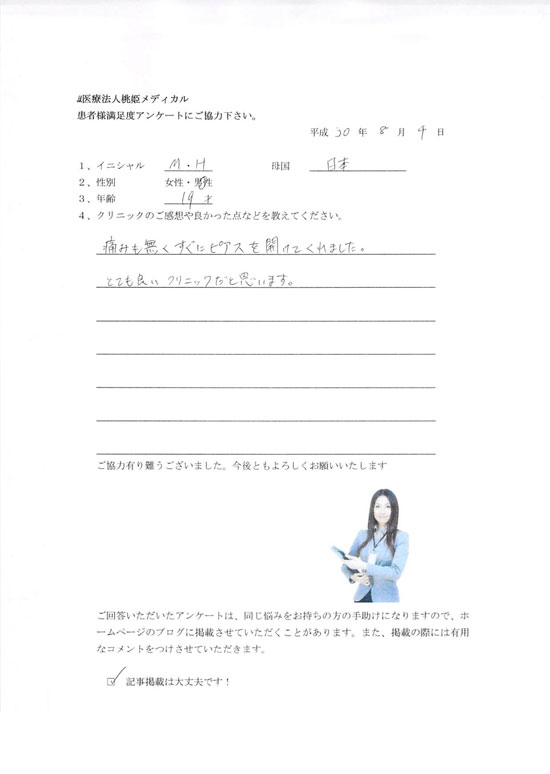 医療法人桃姫メディカル
患者様満足度アンケートにご協力下さい。
平成 30 年 8 月 4 日
1、イニシャル M・H 母国 日本
2、性別 女性・男性
3、年齢 19 才
4、クリニックのご感想や良かった点などを教えてください。
痛みも無くすぐにピアスを開けてくれました。
とても良いクリニックだと思います。
ご協力有り難うございました。今後ともよろしくお願いいたします
ご回答いただいたアンケートは、同じ悩みをお持ちの方の手助けになりますので、ホ
ームページのブログに掲載させていただくことがあります。また、掲載の際には有用
なコメントをつけさせていただきます。
☑ 記事掲載は大丈夫です！